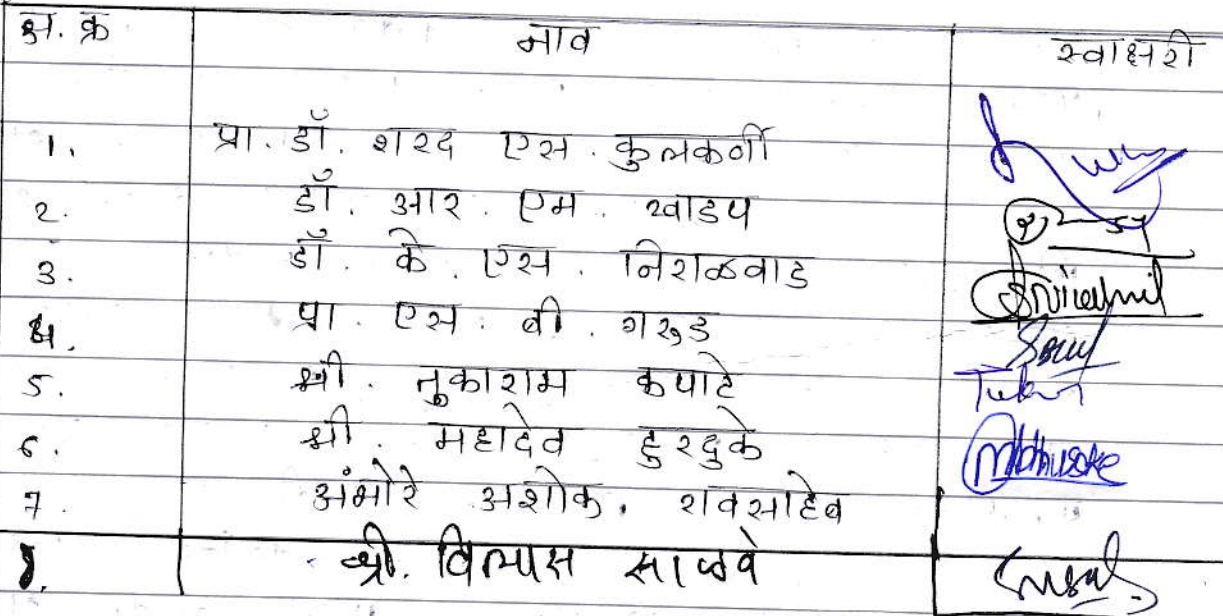 अ. क्र नाव स्वाक्षरी
1. प्रा. डॉ. शरद एस. कुलकर्णी
2. डॉ. आर. एम. खाडप
3. डॉ. के. एस. निराळवाड
4. प्रा. एस. बी. गरुड
5. श्री. तुकाराम कपाटे
6. श्री. महादेव हुरदुके
7. अंभोरे अशोक. रावसाहेब
8. श्री. विलास साळवे